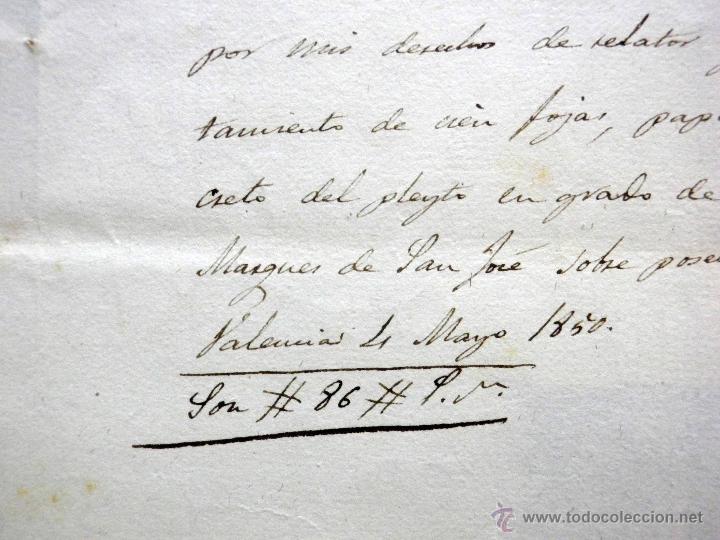 por mis derechos de relator
tamiento de cien fojas, pap
creto del pleyto en grado de
Marques de San José sobre pose
Valencia 4 Mayo 1850.
Son # 86 #
www.todocoleccion.net